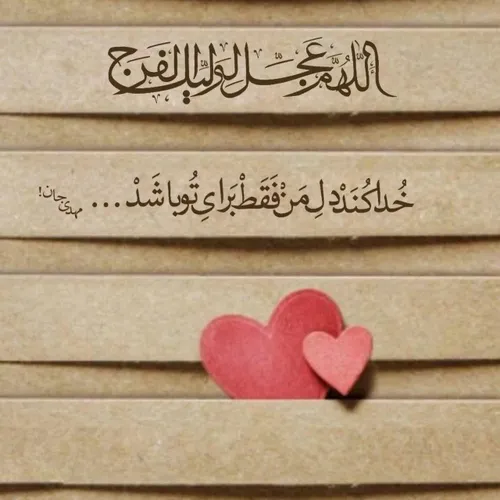 اللّهُمَّ عَجِّل لِوَلیِّکَ الفَرَج
خُداکُنَدْ دِلِ مَنْ فَقَطْ بَرایِ تُو باشَدْ ...
مهدی جان!